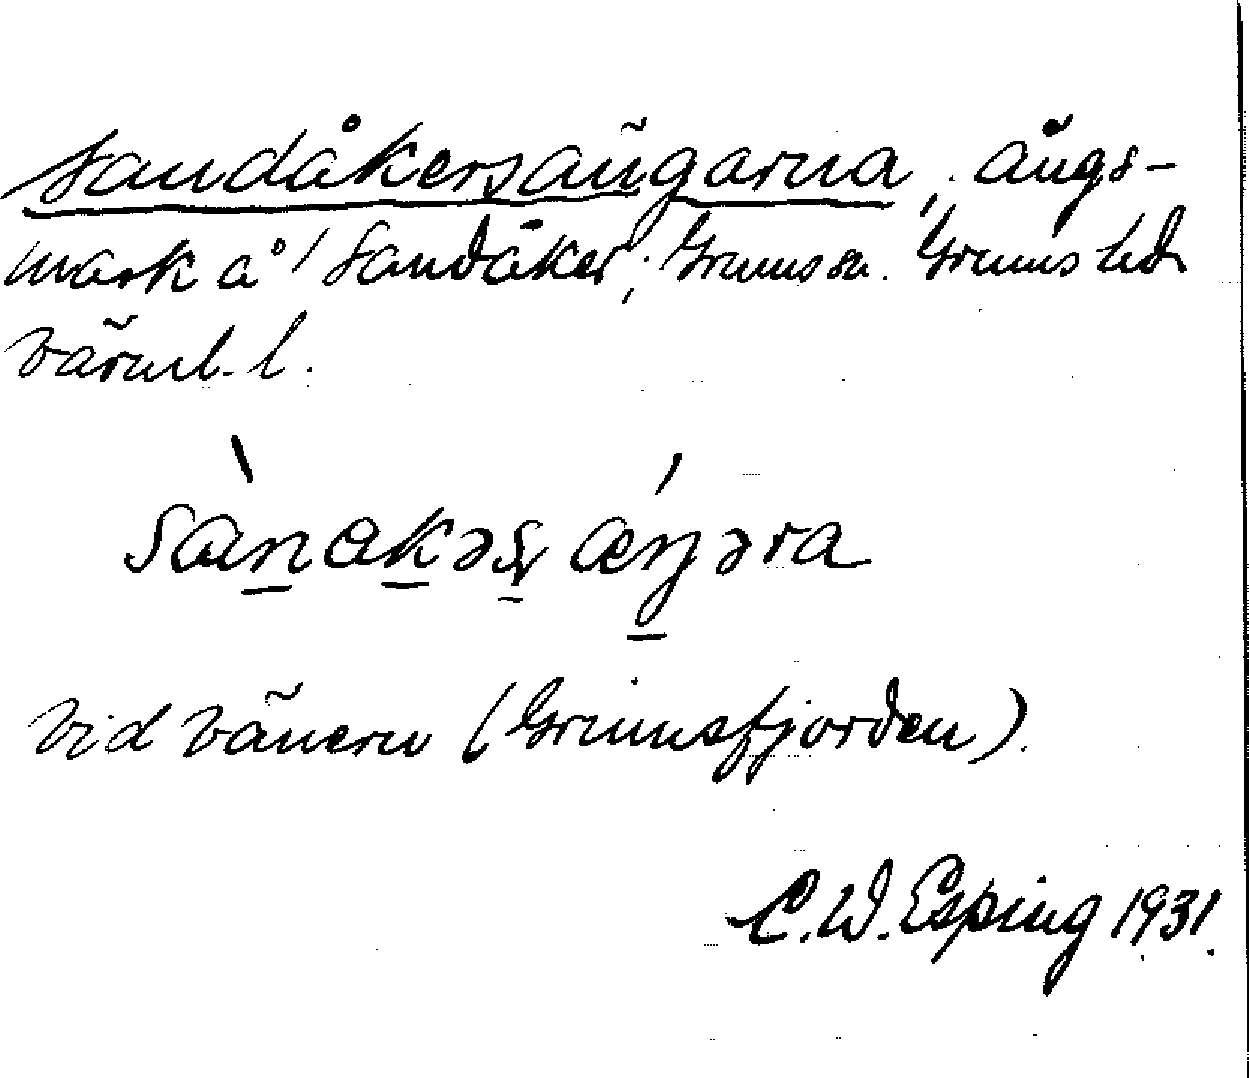 Sandåkersängarna, ängs-
mark å Sandåker, Grums sn. Grums hd
Värml. l.
sànakəʂ ǽŋəra
Vid Vänern (Grumsfjorden).
C. W. Esping 1931.